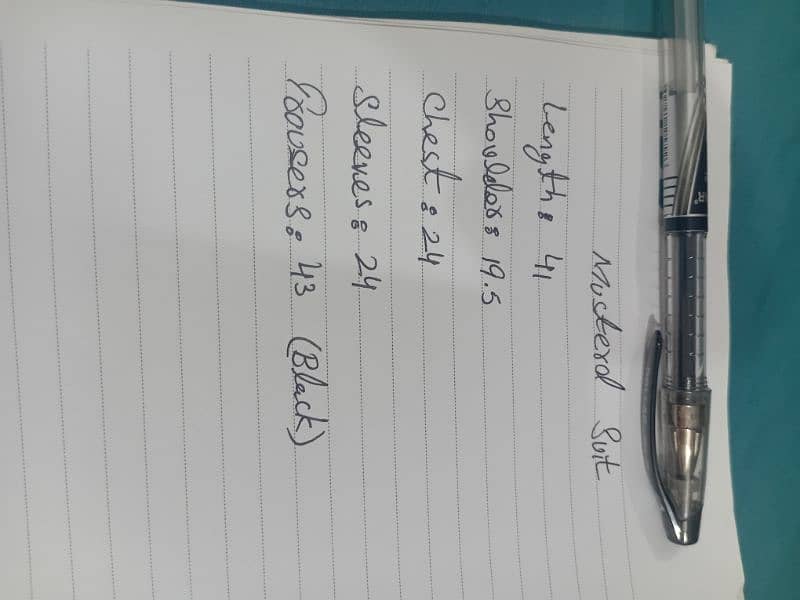 Musterd Suit
Length: 41
Shoulder: 19.5
Chest: 24
Sleeves: 24
Trousers: 43 (Black)